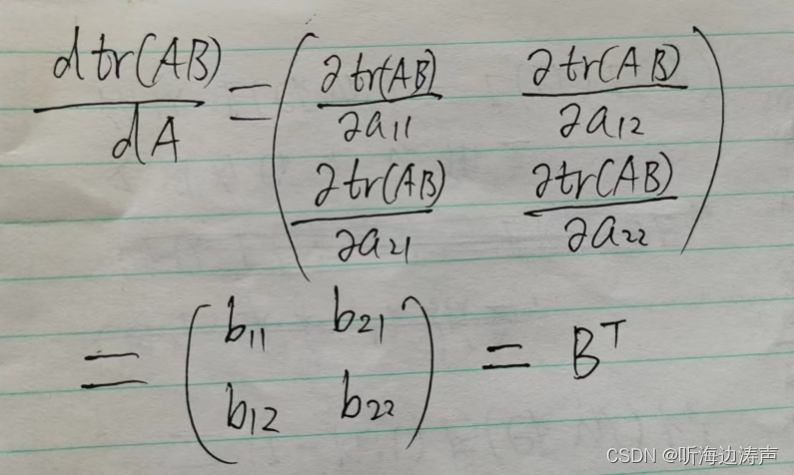 dtr(AB)/dA = ( ∂tr(AB)/∂a₁₁ ∂tr(AB)/∂a₁₂
∂tr(AB)/∂a₂₁ ∂tr(AB)/∂a₂₂ )
= ( b₁₁ b₂₁
b₁₂ b₂₂ ) = Bᵀ
CSDN @听海边涛声